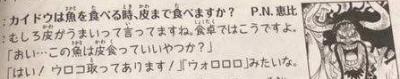 ：カイドウは魚を食べる時、皮まで食べますか？　P.N.恵比
：むしろ皮がうまいって言ってますね。食卓ではこうですよ。
「おい…この魚は皮食っていいやつか？」
「はい！ウロコ取ってあります！」『ウォロロロ』みたいな。